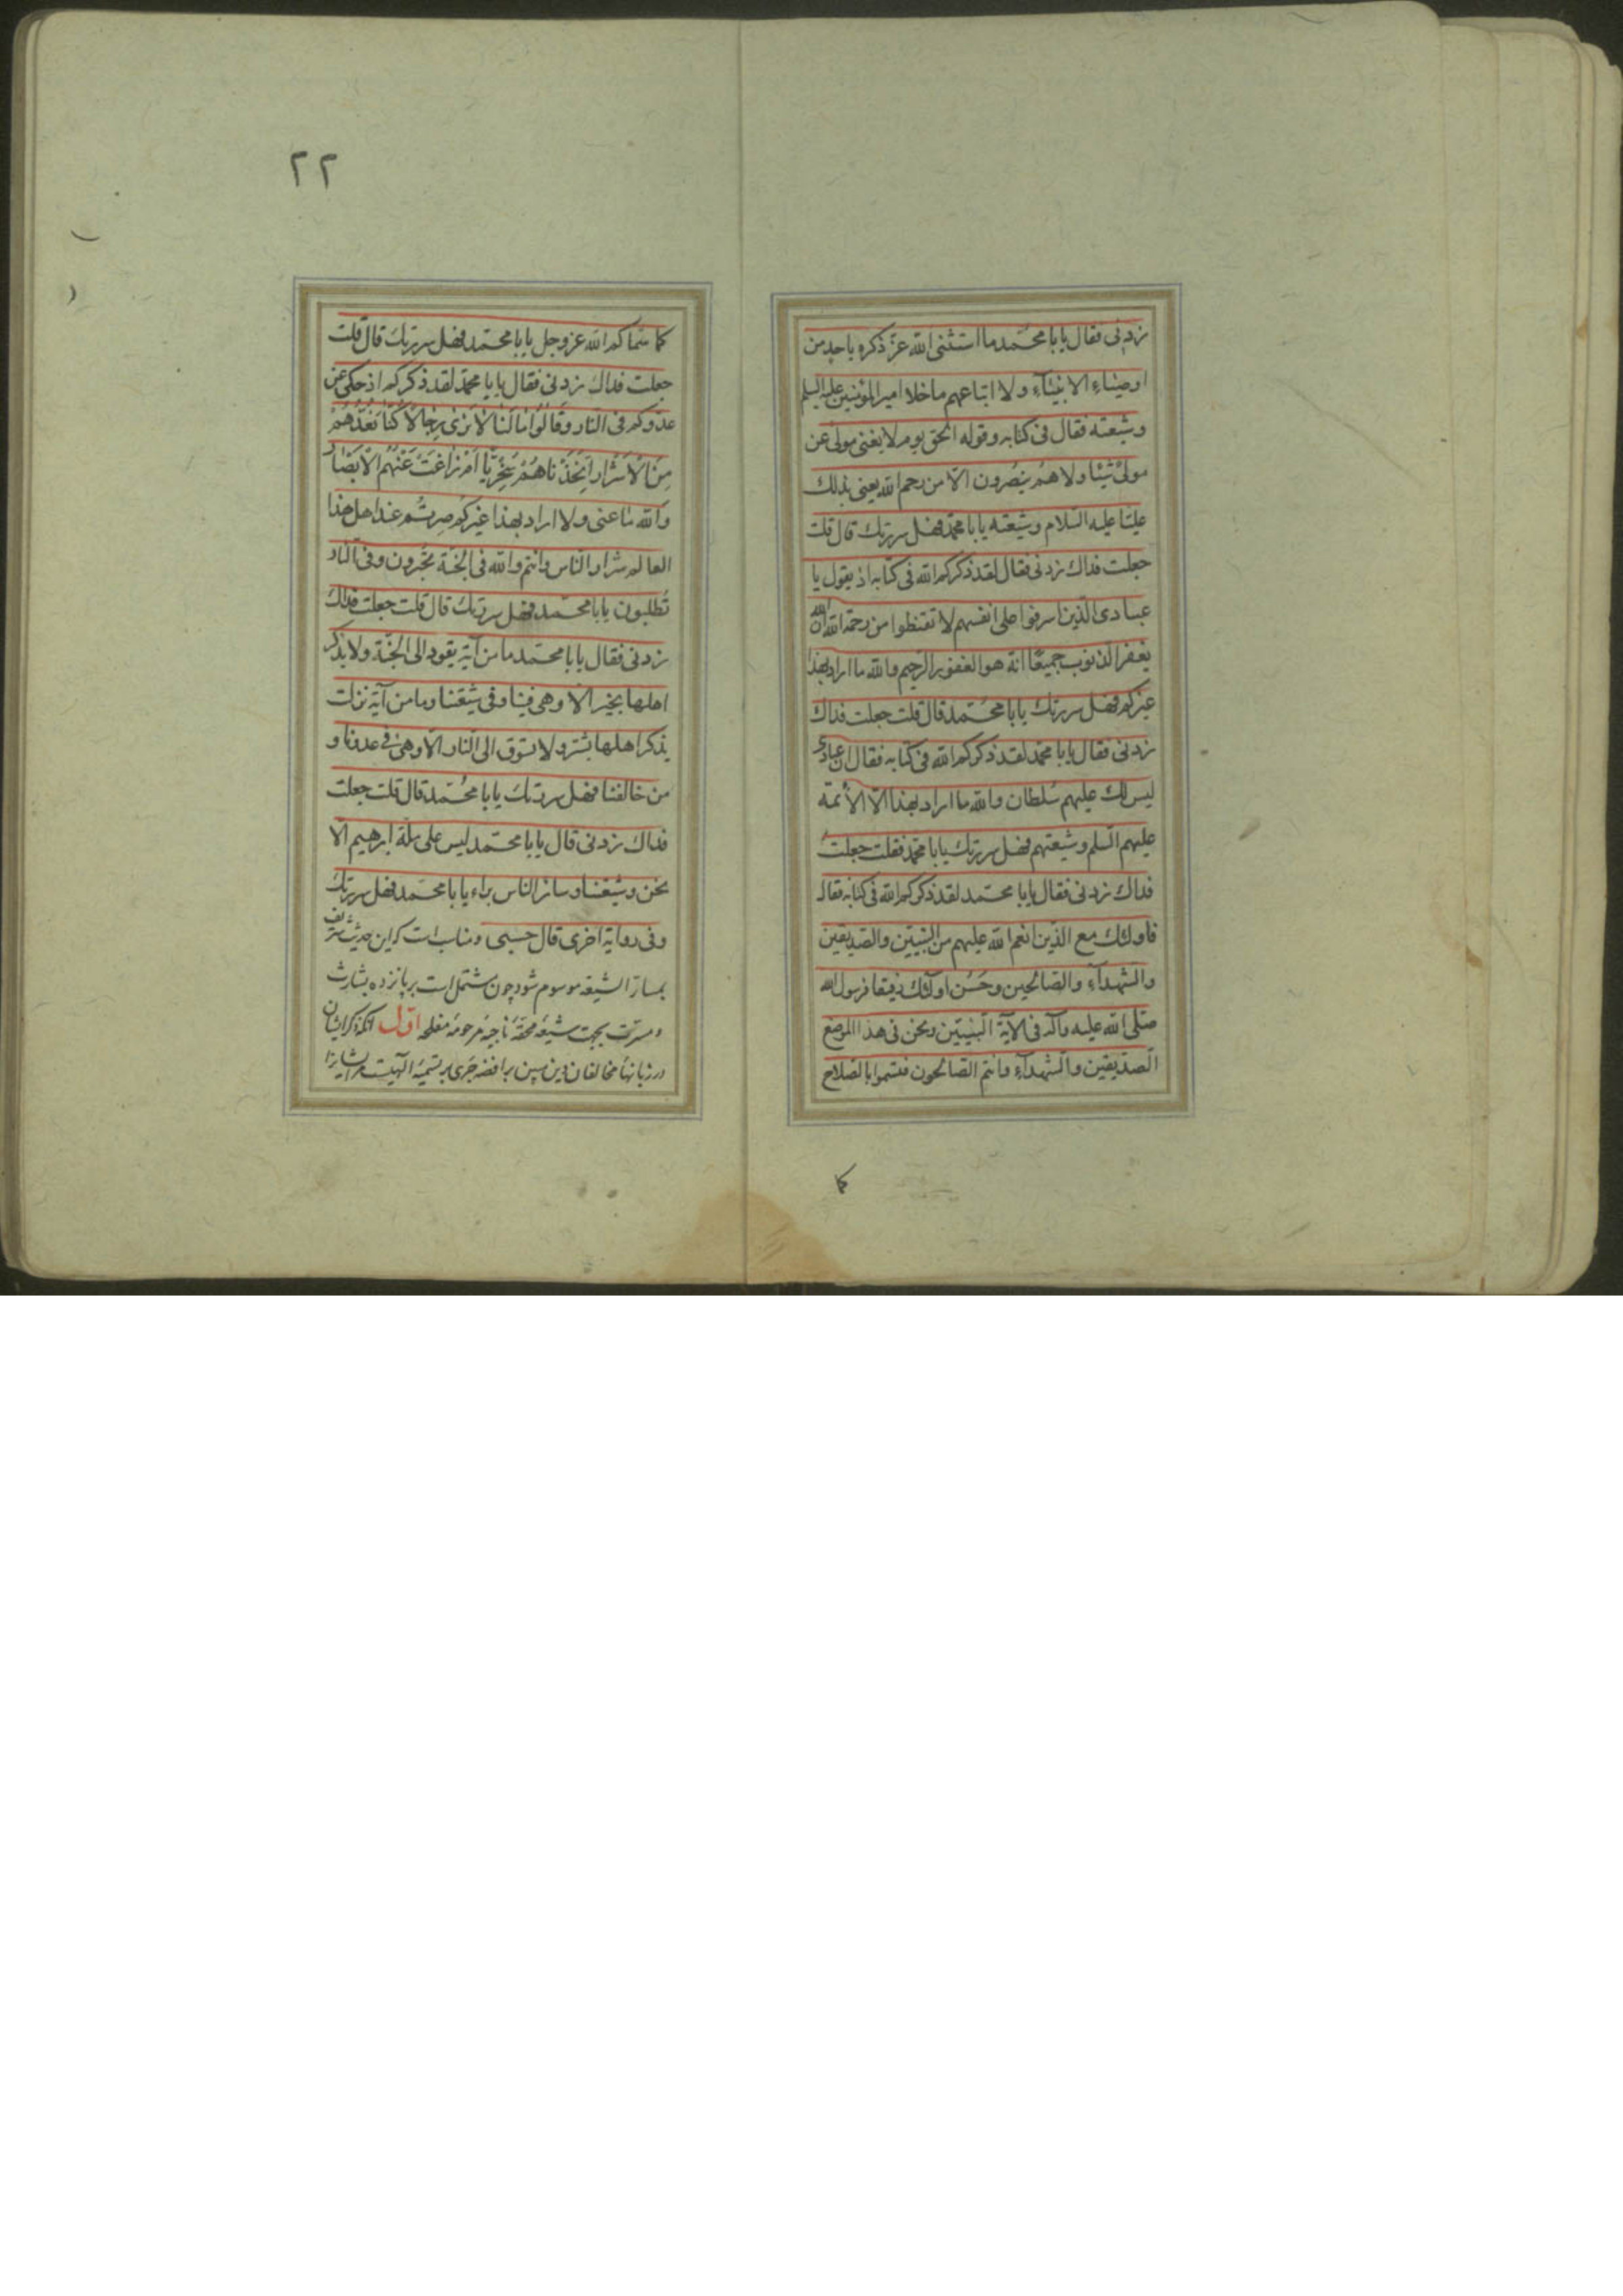 زدنی فقال یابا محمّد ما استثنی الله عزّ ذکره باحد من
اوصیاءِ الانبیآءِ ولا اتباعهم ما خلا امیر المؤمنین علیه السلم
وشیعته فقال فی کتابه وقوله الحق یوم لا یغنی مولی عن
مولیً شیئا ولا هم ینصرون الّا من رحم الله یعنی بذلک
علیّا علیه السّلام وشیعته یابا محمّد فهل سررتک قال قلت
جعلت فداک زدنی فقال لقد ذکرکم الله فی کتابه اذ یقول یا
عبادی الّذین اسرفوا علی انفسهم لا تقنطوا من رحمة الله ان الله
یغفر الذنوب جمیعًا انه هو الغفور الرّحیم والله ما اراد بهذا
غیرکم فهل سررتک یابا محمّد قال قلت جعلت فداک
زدنی فقال یابا محمّد لقد ذکرکم الله فی کتابه فقال ان عبادی
لیس لک علیهم سُلطان والله ما اراد بهذا الّا الأئمّة
علیهم السلم وشیعتهم فهل سررتک یابا محمّد فقلت جعلت
فداک زدنی فقال یابا محمّد لقد ذکرکم الله فی کتابه فقال
فاولئک مع الّذین انعم الله علیهم من النبیّین والصّدیقین
والشّهدآءِ والصّالحین وحَسُن اولئک رفیقا فرسول الله
صلّی الله علیه وآله فی الآیة النّبیّین ونحن فی هذا الموضع
الصدّیقین والشّهدآءِ وانتم الصّالحون فتسمّوا بالصّلاح
کما
۲۲
کما سمّاکم الله عزوجل یابا محمّد فهل سررتک قال قلت
جعلت فداک زدنی فقال یابا محمّد لقد ذکرکم اذ حکی عن
عدوّکم فی النّار وقَالُوا ما لَنَا لَا نَرٰی رِجَالًا کُنَّا نَعُدُّهُمْ
مِنَ الْأَشْرَارِ اَتَّخَذْنَاهُمْ سِخْرِیًّا اَمْ زَاغَتْ عَنْهُمُ الْاَبْصَارُ
والله ما عنی ولا اراد بهذا غیرکم صِرتُم عند اهل هذا
العالم شرار النّاس وانتم والله فی الجنّة تُحْبَرون وفی النّار
تُطلبون یابا محمّد فهل سررتک قال قلت جعلت فداک
زدنی فقال یابا محمّد ما من آیة یقود الی الجنّة ولا یذکر
اهلها بخیر الّا وهی فینا وفی شیعتنا وما من آیة نزلت
یذکر اهلها بشرّ ولا تسوق الی النّار الّا وهی فی عدوّنا و
من خالفنا فهل سررتک یابا محُمّد قال قلت جعلت
فداک زدنی قال یابا محمّد لیس علی ملّة ابرهیم الّا
نحن وشیعتنا وسائر النّاس براء یابا محمّد فهل سررتک
وفی روایة اخری قال حسبی ومناسب است که این حدیث شریف
بمسارّ الشیعه موسوم شود چون مشتمل است بر پانزده بشارت
ومسرّت بجهت شیعهٔ محقهٔ ناجیهٔ مرحومهٔ مفلحه اوّل آنکه ذکر ایشان
در زبانها مخالفان دین مبین برافضه جَری بر تسمیهٔ الهیست مر ایشانرا